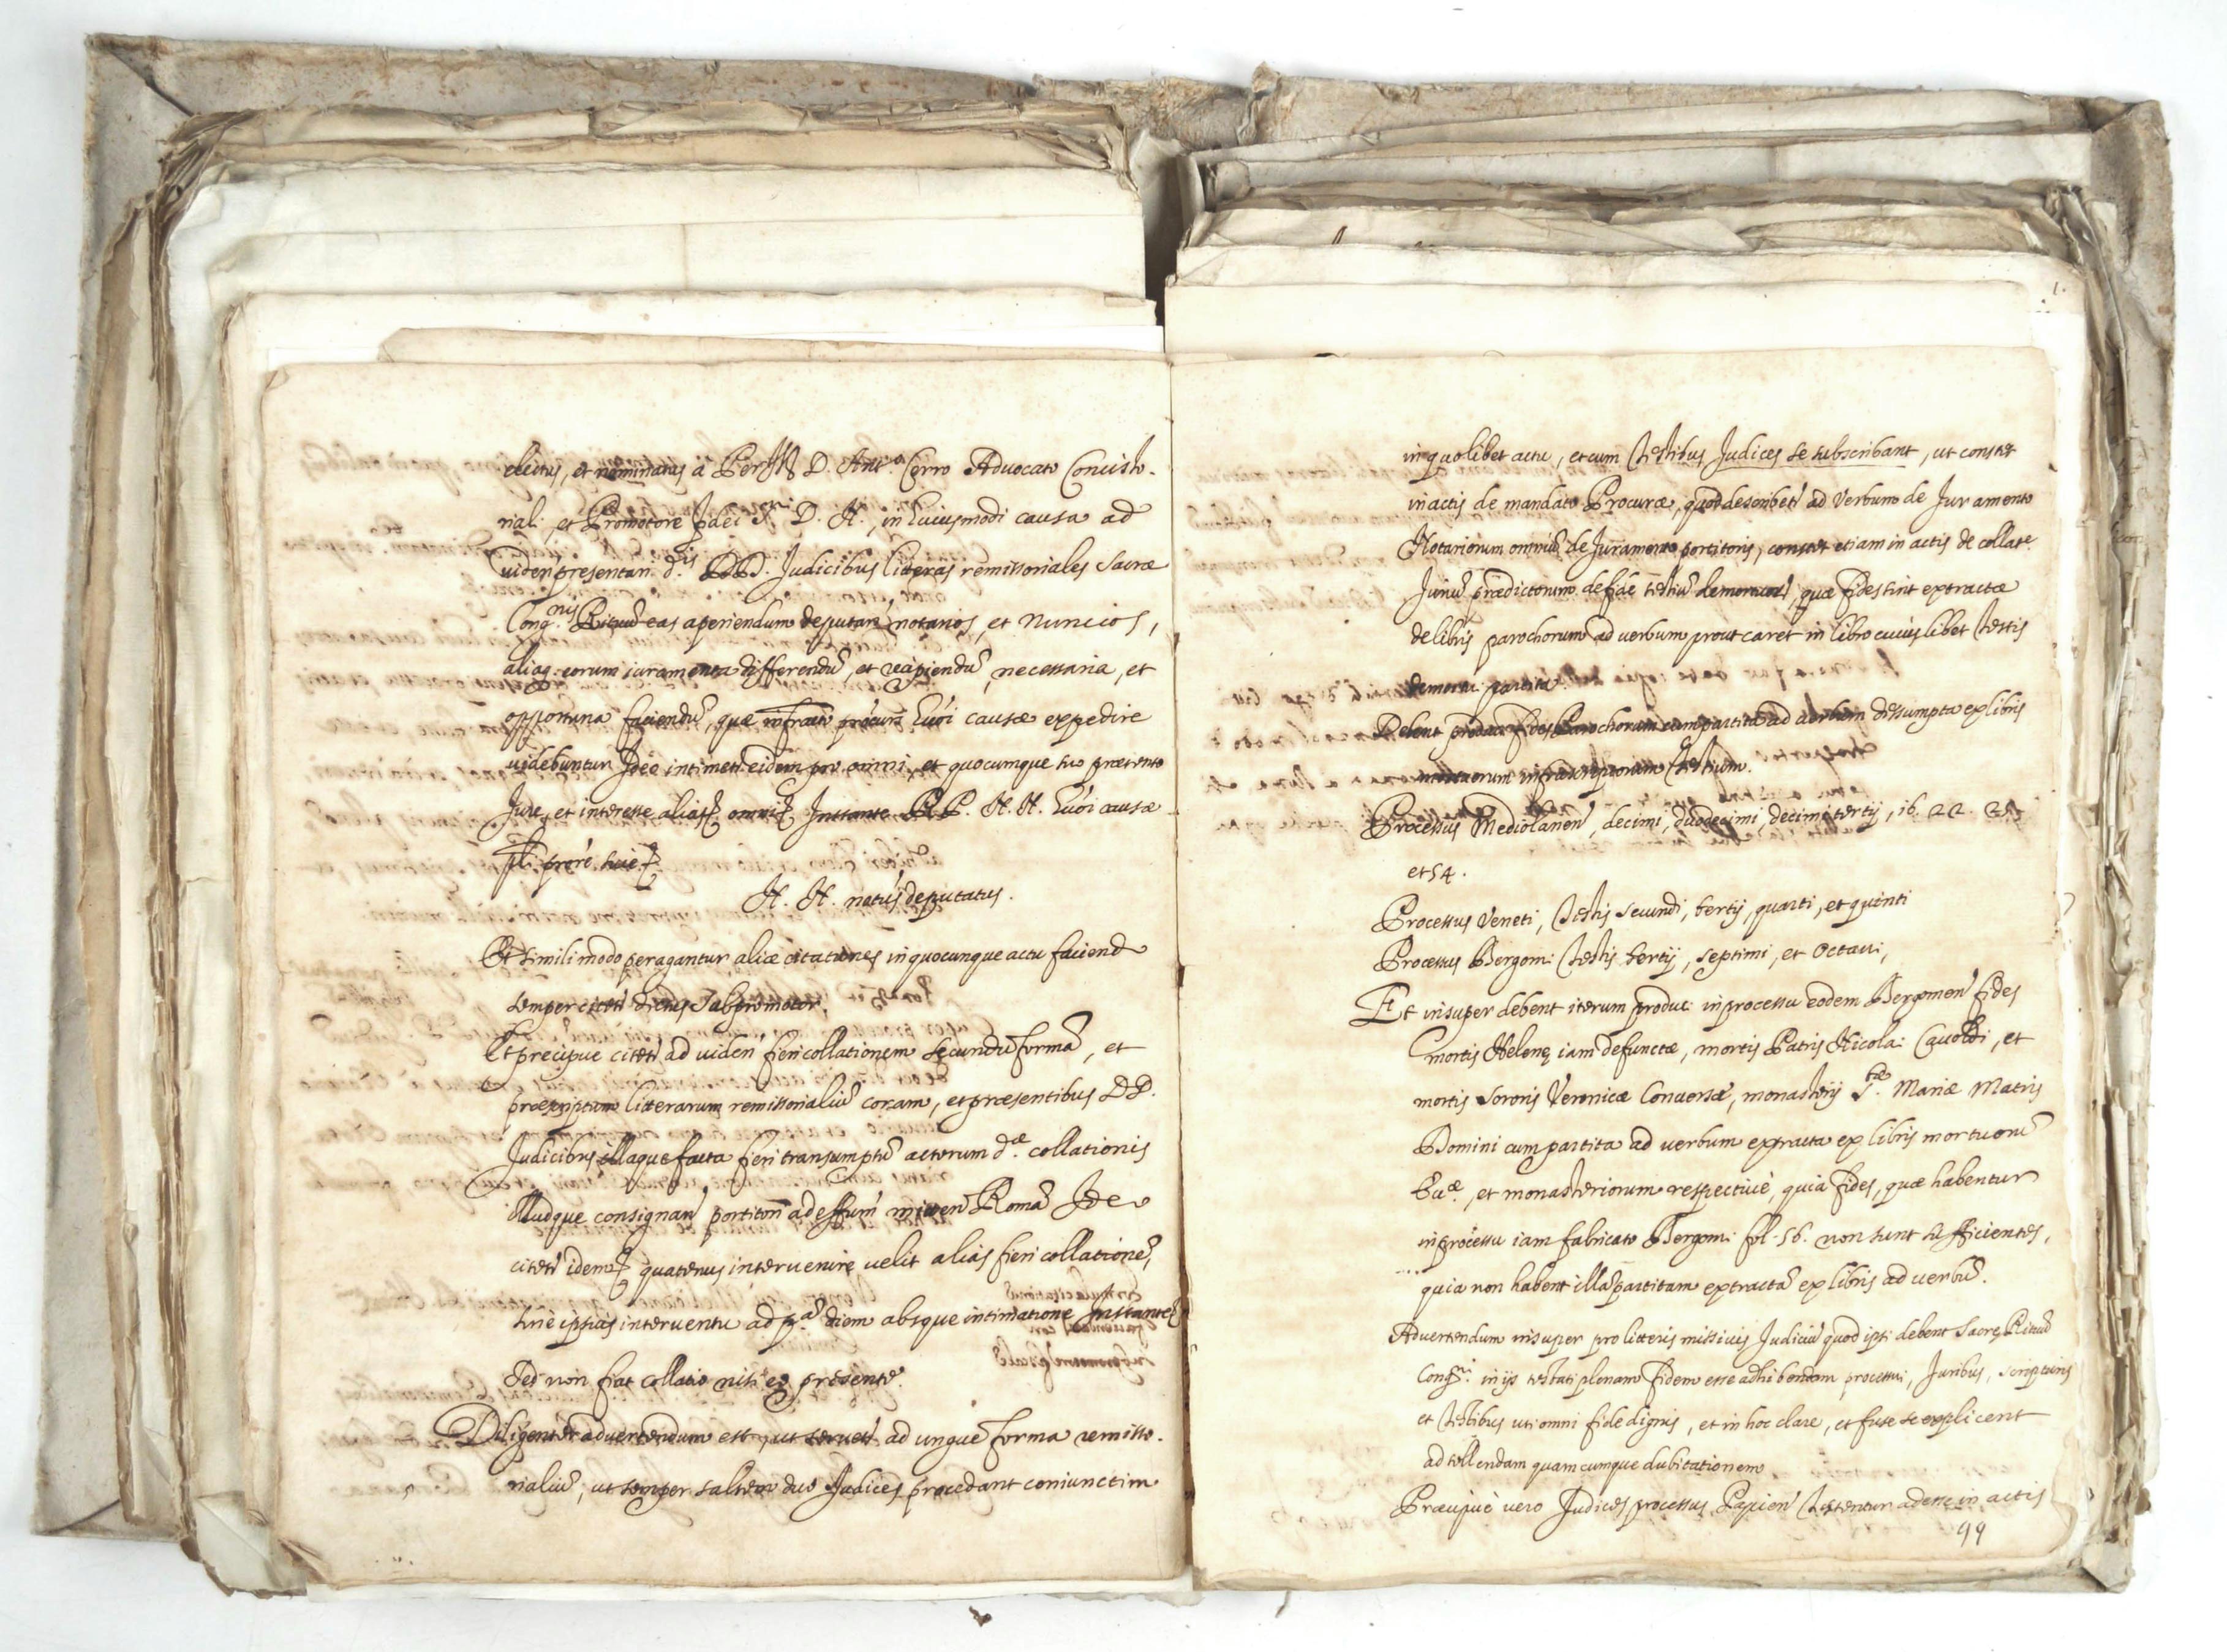 electus, et nominatus à Per D. Ant.o Cerro Advocato Concisto-
riali et Promotore fidei D. N., in huiusmodi causa ad
videri presentari d.is DD. Judicibus litteras remissoriales Sacræ
Cong.nis Rituũ eas aperiendum deputari notarios, et Nuncios,
aliaq. eorum iuramenta differendũ, et recipiendũ, necessaria, et
opportuna faciendũ, quæ causæ expedire
videbuntur Ideo intimetr eidem pro omni, et quocumque suo prætenso
Jure, et interesse alias omni Instante PP. N. N. causæ
N. N. notus deputatus.
Et simili modo peragantur aliæ citationes in quocunque actu faciend
semper citetr dictus Subpromotor.
Et precipue citetr ad viden fieri collationem secundũ formã, et
præscriptum litterarum remissorialiũ coram, et præsentibus DD.
Judicibus illaque facta fieri transumptũ acterum d.æ collationis
illudque consignari portitori ad effum mitten Romã Ideo
citetr idem quatenus intervenire velit aliàs fieri collationẽ,
sine ipsius interventu ad p.ã diem absque intimatione Instante
Sed non fiat collatio nisi eo presente.
Diligenter advertendum est, ut servetr ad unguẽ forma remisso-
rialiũ, ut semper saltem duo Judices procedant coniunctim
in quolibet actu, et cum testibus Judices se subscribant, ut constet
in actis de mandato Procuræ, quod describetr ad verbum de Juramento
Notariorum omniũ de Juramento portitoris, constet etiam in actis de collat.e
Juriũ prædictorum de fide testiũ demortuorũ, quæ fides sint extractæ
de libris parochorum ad verbum prout caret in libro cuiuslibet testis
demortui partita.
Debent produci fides Parochorum cum partita ad verbum desumpta ex libris
mortuorum infrascriptorum testium.
Processus Mediolanen, decimi, duodecimi, decimi tertij, 16. 22.
et 54.
Processus Veneti, testis secundi, tertij, quarti, et quinti
Processus Bergomi testis tertij, septimi, et octavi,
Et insuper debent iterum produci in processu eodem Bergomen fides
mortis Helenę iam defunctæ, mortis Patris Nicolai Cavoldi, et
mortis sororis Veronicæ Conversæ, monasterij S.tæ Mariæ Matris
Domini cum partita ad verbum extracta ex libris mortuorũ
Ecc.æ, et monasteriorum respectivè, quia fides, quæ habentur
in processu iam fabricato Bergomi fol. 56. non sunt sufficientes,
quia non habent illã partitam extractã ex libris ad verbũ.
Advertendum insuper pro litteris missivis Judiciũ quod ipsi debent Sacrę Rituũ
Cong.ni in ijs testati plenam fidem esse adhibendam processui, Juribus, scripturis
et testibus uti omni fide dignis, et in hoc clare, et fuse se explicent
ad tollendam quamcumque dubitationem
Præcipuè vero Judices processus Papien testentur adesse in actis
99